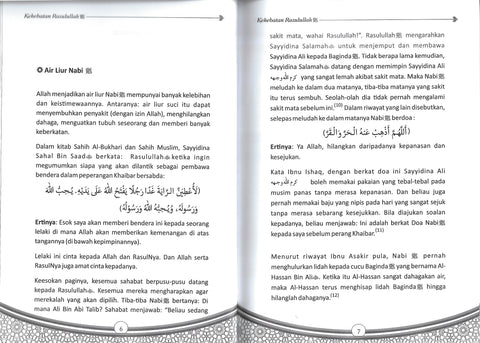 Kehebatan Rasulullahﷺ
❂ Air Liur Nabi ﷺ
Allah menjadikan air liur Nabiﷺ mempunyai banyak kelebihan
dan keistimewaannya. Antaranya: air liur suci itu dapat
menyembuhkan penyakit (dengan izin Allah), menghilangkan
dahaga, menguatkan tubuh seseorang dan memberi banyak
keberkatan.
Dalam kitab Sahih Al-Bukhari dan Sahih Muslim, Sayyidina
Sahal Bin Saad berkata: Rasulullahﷺ ketika ingin
mengumumkan siapa yang akan dilantik sebagai pembawa
bendera dalam peperangan Khaibar bersabda:
(لَأُعْطِيَنَّ الرَّايَةَ غَدًا رَجُلًا يَفْتَحُ اللهُ عَلَى يَدَيْهِ. يُحِبُّ اللهَ
وَرَسُولَهُ، وَيُحِبُّهُ اللهُ وَرَسُولُهُ)
Ertinya: Esok saya akan memberi bendera ini kepada seorang
lelaki di mana Allah akan memberikan kemenangan di atas
tangannya (di bawah kepimpinannya).
Lelaki ini cinta kepada Allah dan RasulNya. Dan Allah serta
RasulNya juga amat cinta kepadanya.
Keesokan paginya, kesemua sahabat berpusu-pusu datang
kepada Rasulullahﷺ. Kesemua mereka mengharapkan agar
merekalah yang akan dipilih. Tiba-tiba Nabiﷺ bertanya: Di
mana Ali Bin Abi Talib? Sahabat menjawab: "Beliau sedang
6
Kehebatan Rasulullahﷺ
sakit mata, wahai Rasulullah!". Rasulullahﷺ mengarahkan
Sayyidina Salamah untuk menjemput dan membawa
Sayyidina Ali kepada Bagindaﷺ. Tidak berapa lama kemudian,
Sayyidina Salamah datang dengan memimpin Sayyidina Ali
كرم الله وجهه yang sangat lemah akibat sakit mata. Maka Nabiﷺ
meludah ke dalam dua matanya, tiba-tiba matanya yang sakit
itu terus sembuh. Seolah-olah dia tidak pernah mengalami
sakit mata sebelum ini.[10] Dalam riwayat yang lain disebutkan,
selepas meludah ke dalam matanya Nabiﷺ berdoa:
(اَللَّهُمَّ أَذْهِبْ عَنْهُ الْحَرَّ وَالْقَرَّ)
Ertinya: Ya Allah, hilangkan daripadanya kepanasan dan
kesejukan.
Kata Ibnu Ishaq, dengan berkat doa ini Sayyidina Ali
كرم الله وجهه boleh memakai pakaian yang tebal-tebal pada
musim panas tanpa merasa kepanasan. Dan beliau juga
pernah memakai baju yang nipis pada hari yang sangat sejuk
tanpa merasa sebarang kesejukkan. Bila diajukan soalan
kepadanya, beliau menjawab: Ini adalah berkat Doa Nabiﷺ
kepada saya sebelum perang Khaibar.[11]
Menurut riwayat Ibnu Asakir pula, Nabiﷺ pernah
menghulurkan lidah kepada cucu Bagindaﷺ yang bernama Al-
Hassan Bin Ali. Ketika itu Al-Hassan sangat dahagakan air,
maka Al-Hassan terus menghisap lidah Bagindaﷺ hingga
hilanglah dahaganya.[12]
7